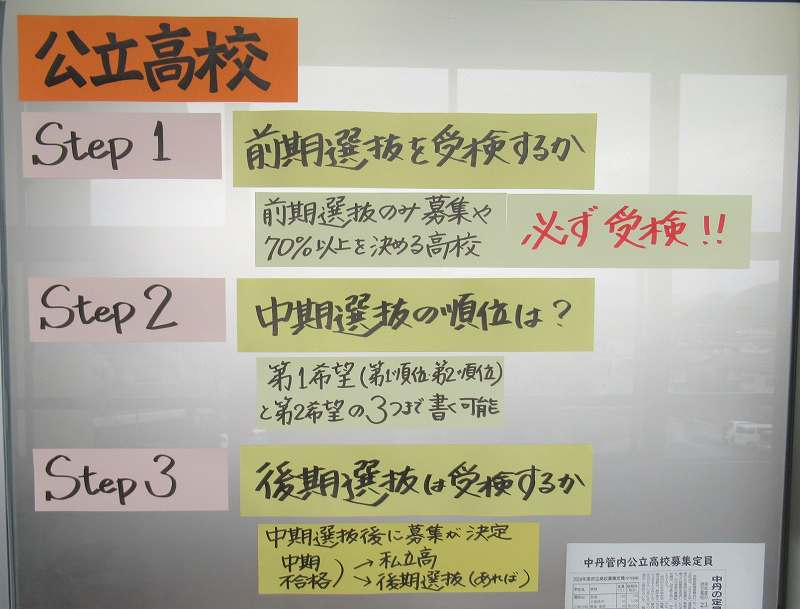 公立高校
Step 1
前期選抜を受検するか
前期選抜のみ募集や
70%以上を決める高校
必ず受検!!
Step 2
中期選抜の順位は?
第1希望(第1順位・第2順位)
と第2希望の3つまで書く可能
Step 3
後期選抜は受検するか
中期選抜後に募集が決定
中期
不合格
)→私立高
→後期選抜(あれば)
中丹管内公立高校募集定員